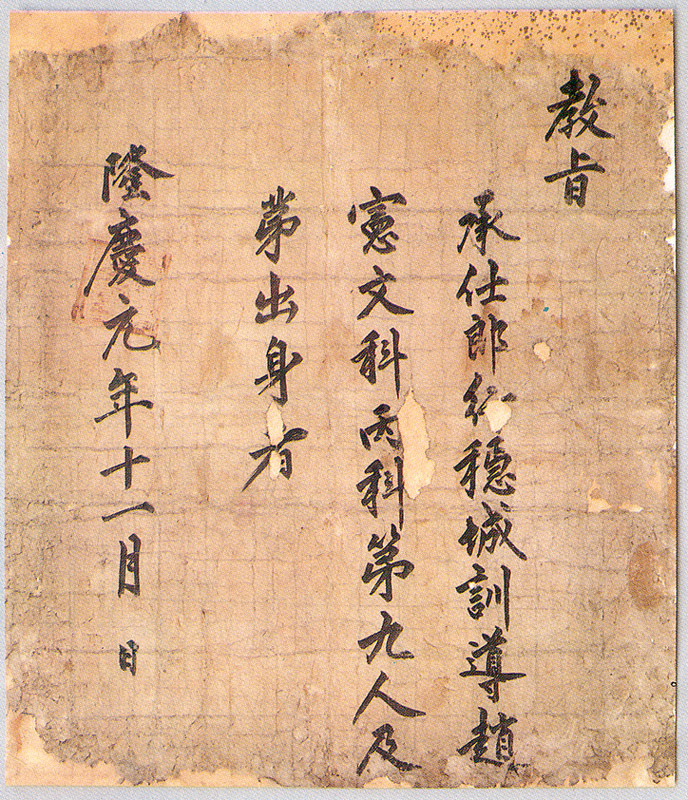 教旨
承仕郎行穩城訓導趙
憲文科丙科第九人及
第出身者
隆慶元年十一月 日